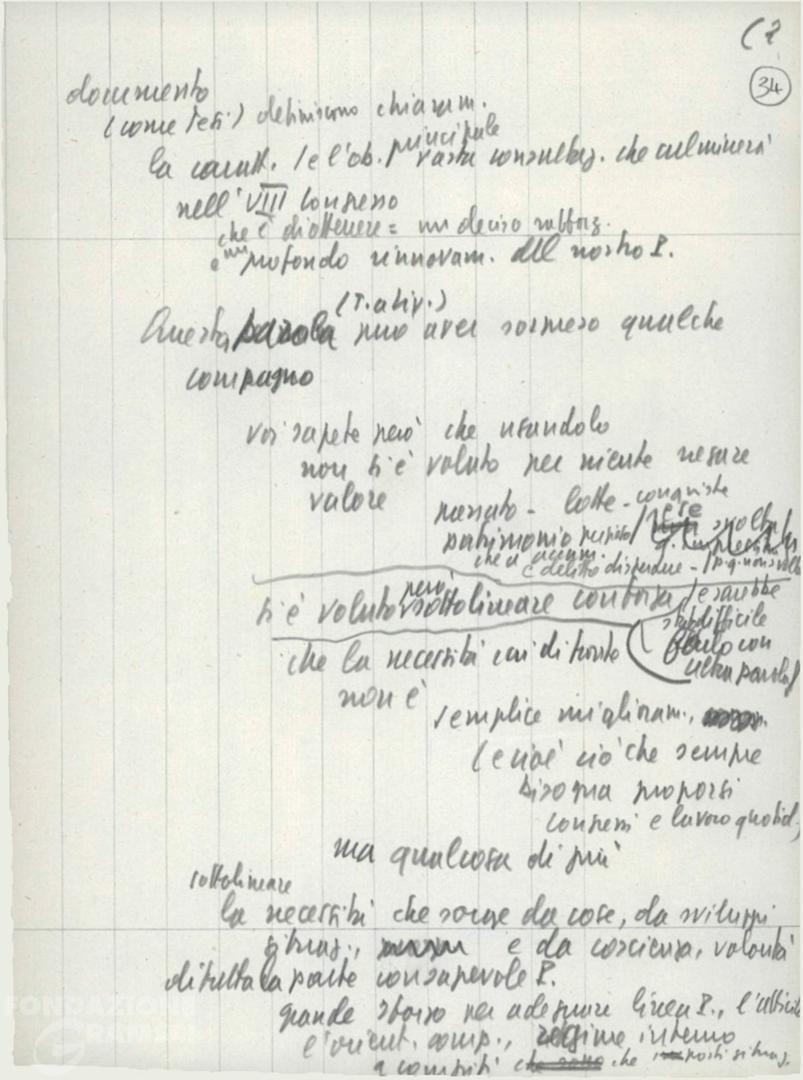 (2
34
documento
(come Tesi) definiscono chiaram.
principale
la caratt. (e l'ob.) vasta consultaz. che culminerà
nell'VIII Congresso
che è di ottenere = un deciso rafforz.
e un profondo rinnovam. del nostro P.
(T. ativ.)
Questa parola può aver sorpreso qualche
compagno
voi sapete però che usandolo
non si è voluto per niente negare
valore
passato - lotte - conquiste
patrimonio
che si accum.
è delitto disperdere -
si è voluto però sottolineare con forza
(e sarebbe
difficile
farlo con
altra parola)
che la necessità cui di fronte
non è
semplice miglioram.,
(e cioè ciò che sempre
bisogna proporsi
congressi e lavoro quotid.,
ma qualcosa di più
sottolineare
la necessità che sorge da cose, da sviluppi
situaz., e da coscienza, volontà
di tutta la parte consapevole P.
grande sforzo per adeguare linea P., l'
e orient. comp., regime interno
a compiti che posti situaz.
FONDAZIONE
GRAMSCI